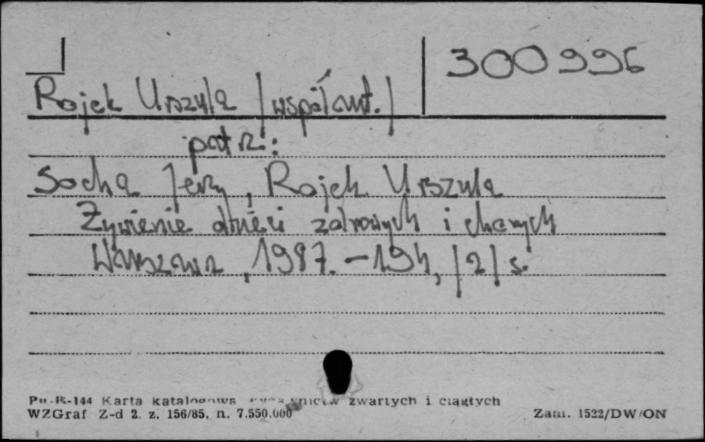 300996
Rojek Urszula /współaut./
patrz:
Socha Jerzy, Rojek Urszula
Żywienie dzieci zdrowych i chorych
Warszawa, 1987. - 194, /2/ s.
Pu-B-144 Karta katalogowa zwartych i ciągłych
WZGraf Z-d 2. z. 156/85. n. 7.550.000
Zam. 1522/DW/ON